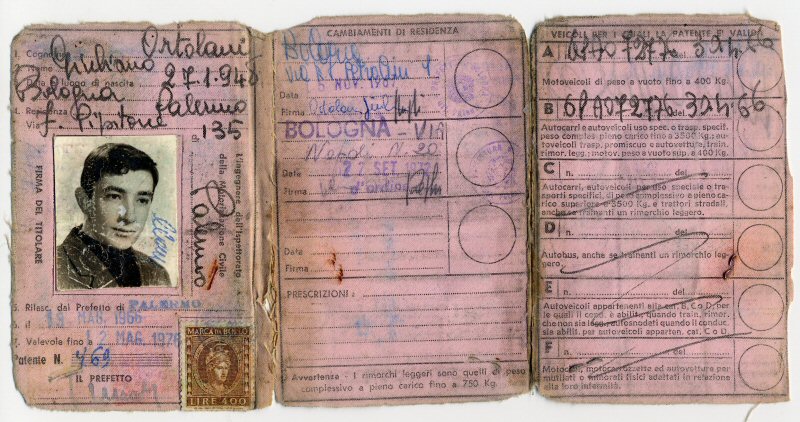 1. Cognome Ortolani
2. Nome Giuliano
3. Data e luogo di nascita 27.1.948
Bologna
4. Residenza Palermo
Via F. Pipitone 135
FIRMA DEL TITOLARE
L'Ingegnere dell'Ispettorato
della Motorizzazione Civile
di Palermo
5. Rilasc. dal Prefetto di PALERMO
6. il MAG. 1966
7. Valevole fino a 12 MAG. 1976
Patente N. 769
IL PREFETTO
MARCA DA BOLLO
LIRE 400
CAMBIAMENTI DI RESIDENZA
Bologna
Via
5 NOV. 1967
Data
Firma
BOLOGNA - VIA
Napoli N. 20
Data 22 SET. 197
Firma d'ordine
Data
Firma
PRESCRIZIONI:
Avvertenza - I rimorchi leggeri sono quelli di peso
complessivo a pieno carico fino a 750 Kg.
VEICOLI PER I QUALI LA PATENTE E' VALIDA
A
Motoveicoli di peso a vuoto fino a 400 Kg.
B del
Autocarri e autoveicoli uso spec. o trasp. specif.
peso complес. a pieno carico fino a 3500 Kg.;
autoveicoli trasp. promiscuo e autovetture, train.
rimor. legg.; motov. peso a vuoto sup. a 400 Kg.
C n. del
Autocarri, autoveicoli per uso speciale o tra-
sporti specifici, di peso complessivo a pieno ca-
rico superiore a 3500 Kg. e trattori stradali,
anche se trainanti un rimorchio leggero.
D n. del
Autobus, anche se trainanti un rimorchio leg-
gero.
E n. del
Autoveicoli appartenenti alla cat. B, C o D, per
le quali il cond. è abilit., quando train. rimor.
che non sia legg.; autosnodati quando il conduc.
sia abilit. per autoveicoli appart. cat. C o D.
F n. del
Motocicli, motocarrozzette ed autovetture per
mutilati o minorati fisici adattati in relazione
alla loro infermità.